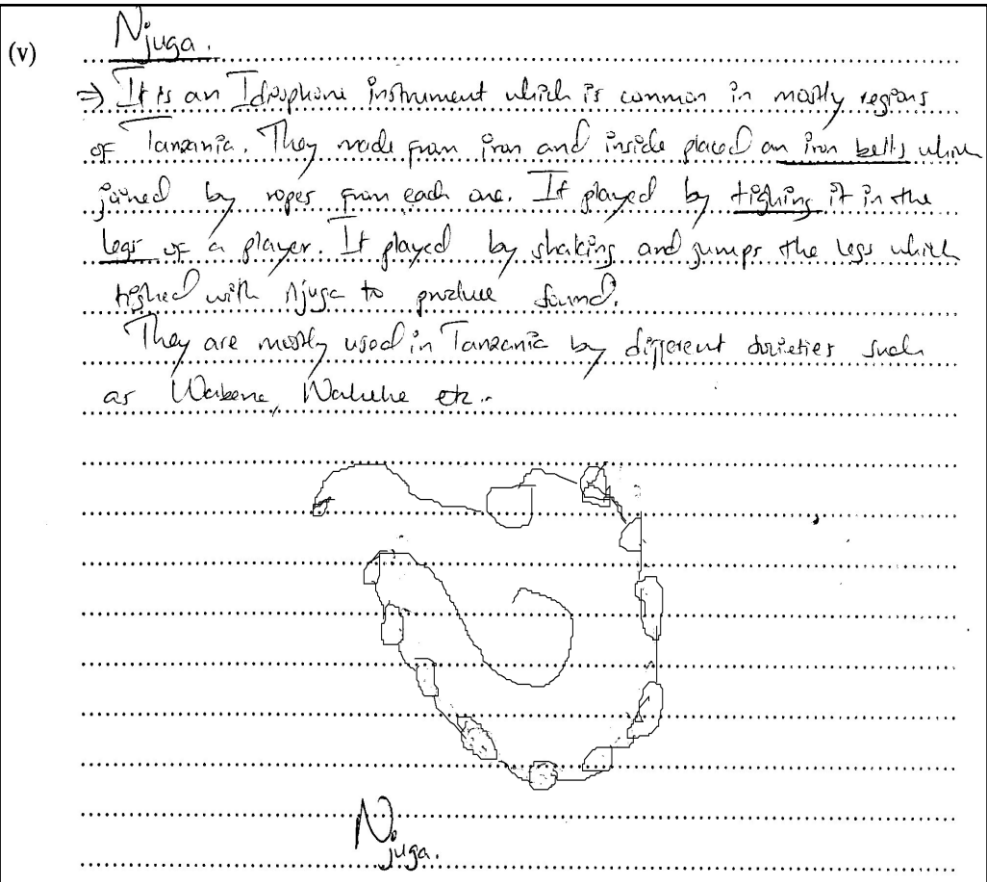 (v) Njuga.
⇒ It is an Idiophone instrument which is common in mostly regions
of Tanzania. They made from iron and inside placed an iron bells which
joined by ropes from each one. It played by tighing it in the
legs of a player. It played by shaking and jumps the legs which
tighed with Njuga to produce sound.
They are mostly used in Tanzania by different societies such
as Wabena, Wahehe etc.
Njuga.